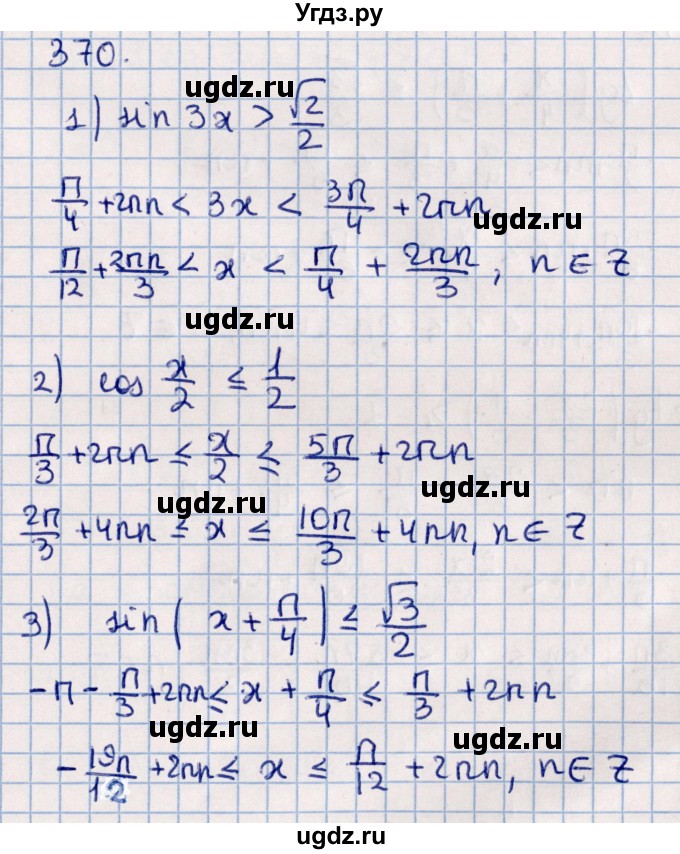 Угдз.ру
370.
ugdz.ru
1) sin 3x > √2/2
ugdz.ru
π/4 + 2πn < 3x < 3π/4 + 2πn
ugdz.ru
π/12 + 2πn/3 < x < π/4 + 2πn/3, n ∈ Z
ugdz.ru
2) cos x/2 ≤ 1/2
ugdz.ru
π/3 + 2πn ≤ x/2 ≤ 5π/3 + 2πn
ugdz.ru
ugdz.ru
2π/3 + 4πn ≤ x ≤ 10π/3 + 4πn, n ∈ Z
ugdz.ru
3) sin(x + π/4) ≤ √3/2
ugdz.ru
-π - π/3 + 2πn ≤ x + π/4 ≤ π/3 + 2πn
ugdz.ru
ugdz.ru
-19π/12 + 2πn ≤ x ≤ π/12 + 2πn, n ∈ Z
ugdz.ru